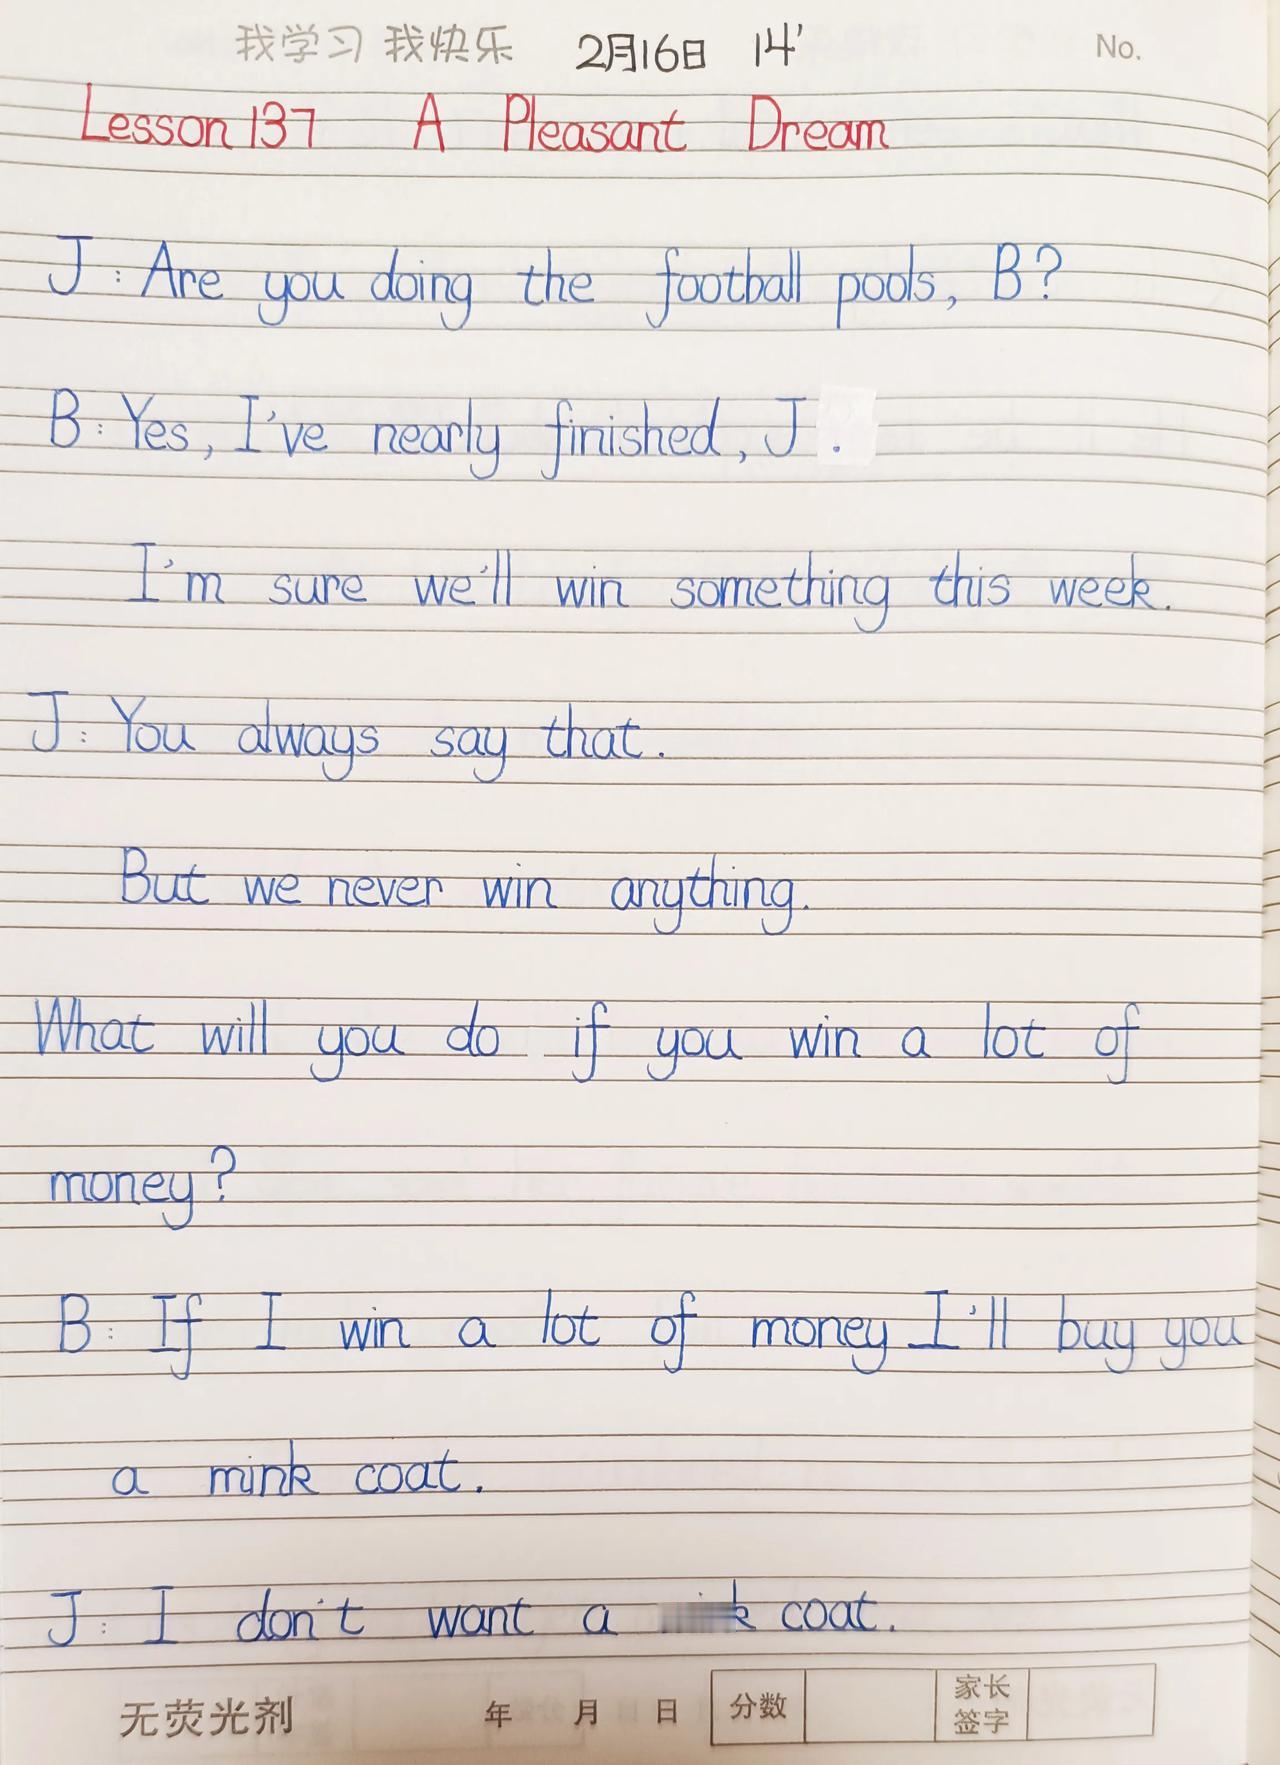 我学习 我快乐 2月16日 14' No.
Lesson 137 A Pleasant Dream
J: Are you doing the football pools, B?
B: Yes, I've nearly finished, J.
I'm sure we'll win something this week.
J: You always say that.
But we never win anything.
What will you do if you win a lot of
money?
B: If I win a lot of money I'll buy you
a mink coat.
J: I don't want a coat.
无荧光剂 年 月 日 分数 家长签字